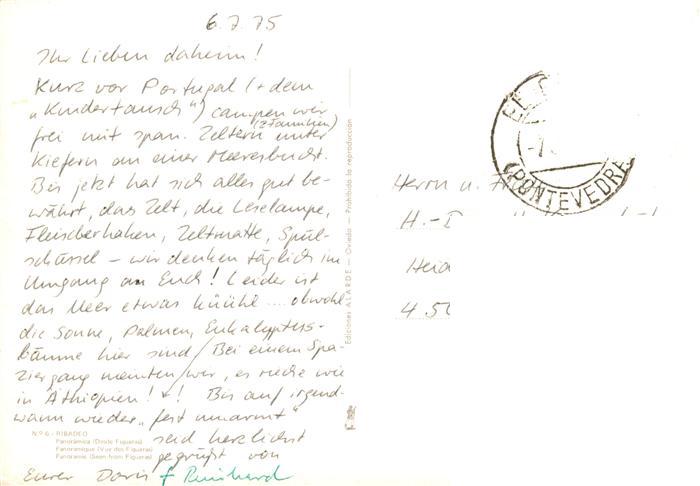 6.7.75
Ihr Lieben daheim!
Kurz vor Portugal (+ dem
„Kindertausch") campen wir
(2 Familien)
frei mit span. Zeltern unter
Kiefern an einer Meeresbucht.
Bis jetzt hat sich alles gut be-
währt, das Zelt, die Leselampe,
Fleischerhaken, Zeltmatte, Spül-
schüssel – wir denken täglich im
Umgang an Euch! Leider ist
das Meer etwas küühl .... obwohl
die Sonne, Palmen, Eukalyptus-
bäume hier sind / Bei einem Spa-
ziergang meinten wir, es rieche wie
in Äthiopien! ! Bis auf irgend-
wann wieder „fest umarmt"
seid herzlichst
gegrüßt von
Eurer Doris + Reinhard
N.º 6 - RIBADEO
Panorámica (Desde Figueras)
Panoramique (Vue des Figueras)
Panoramic (Seen from Figueras)
Ediciones ALARDE - Oviedo - Prohibida la reproducción
(PONTEVEDRA
Herrn u.
H.-
Heid
4.50